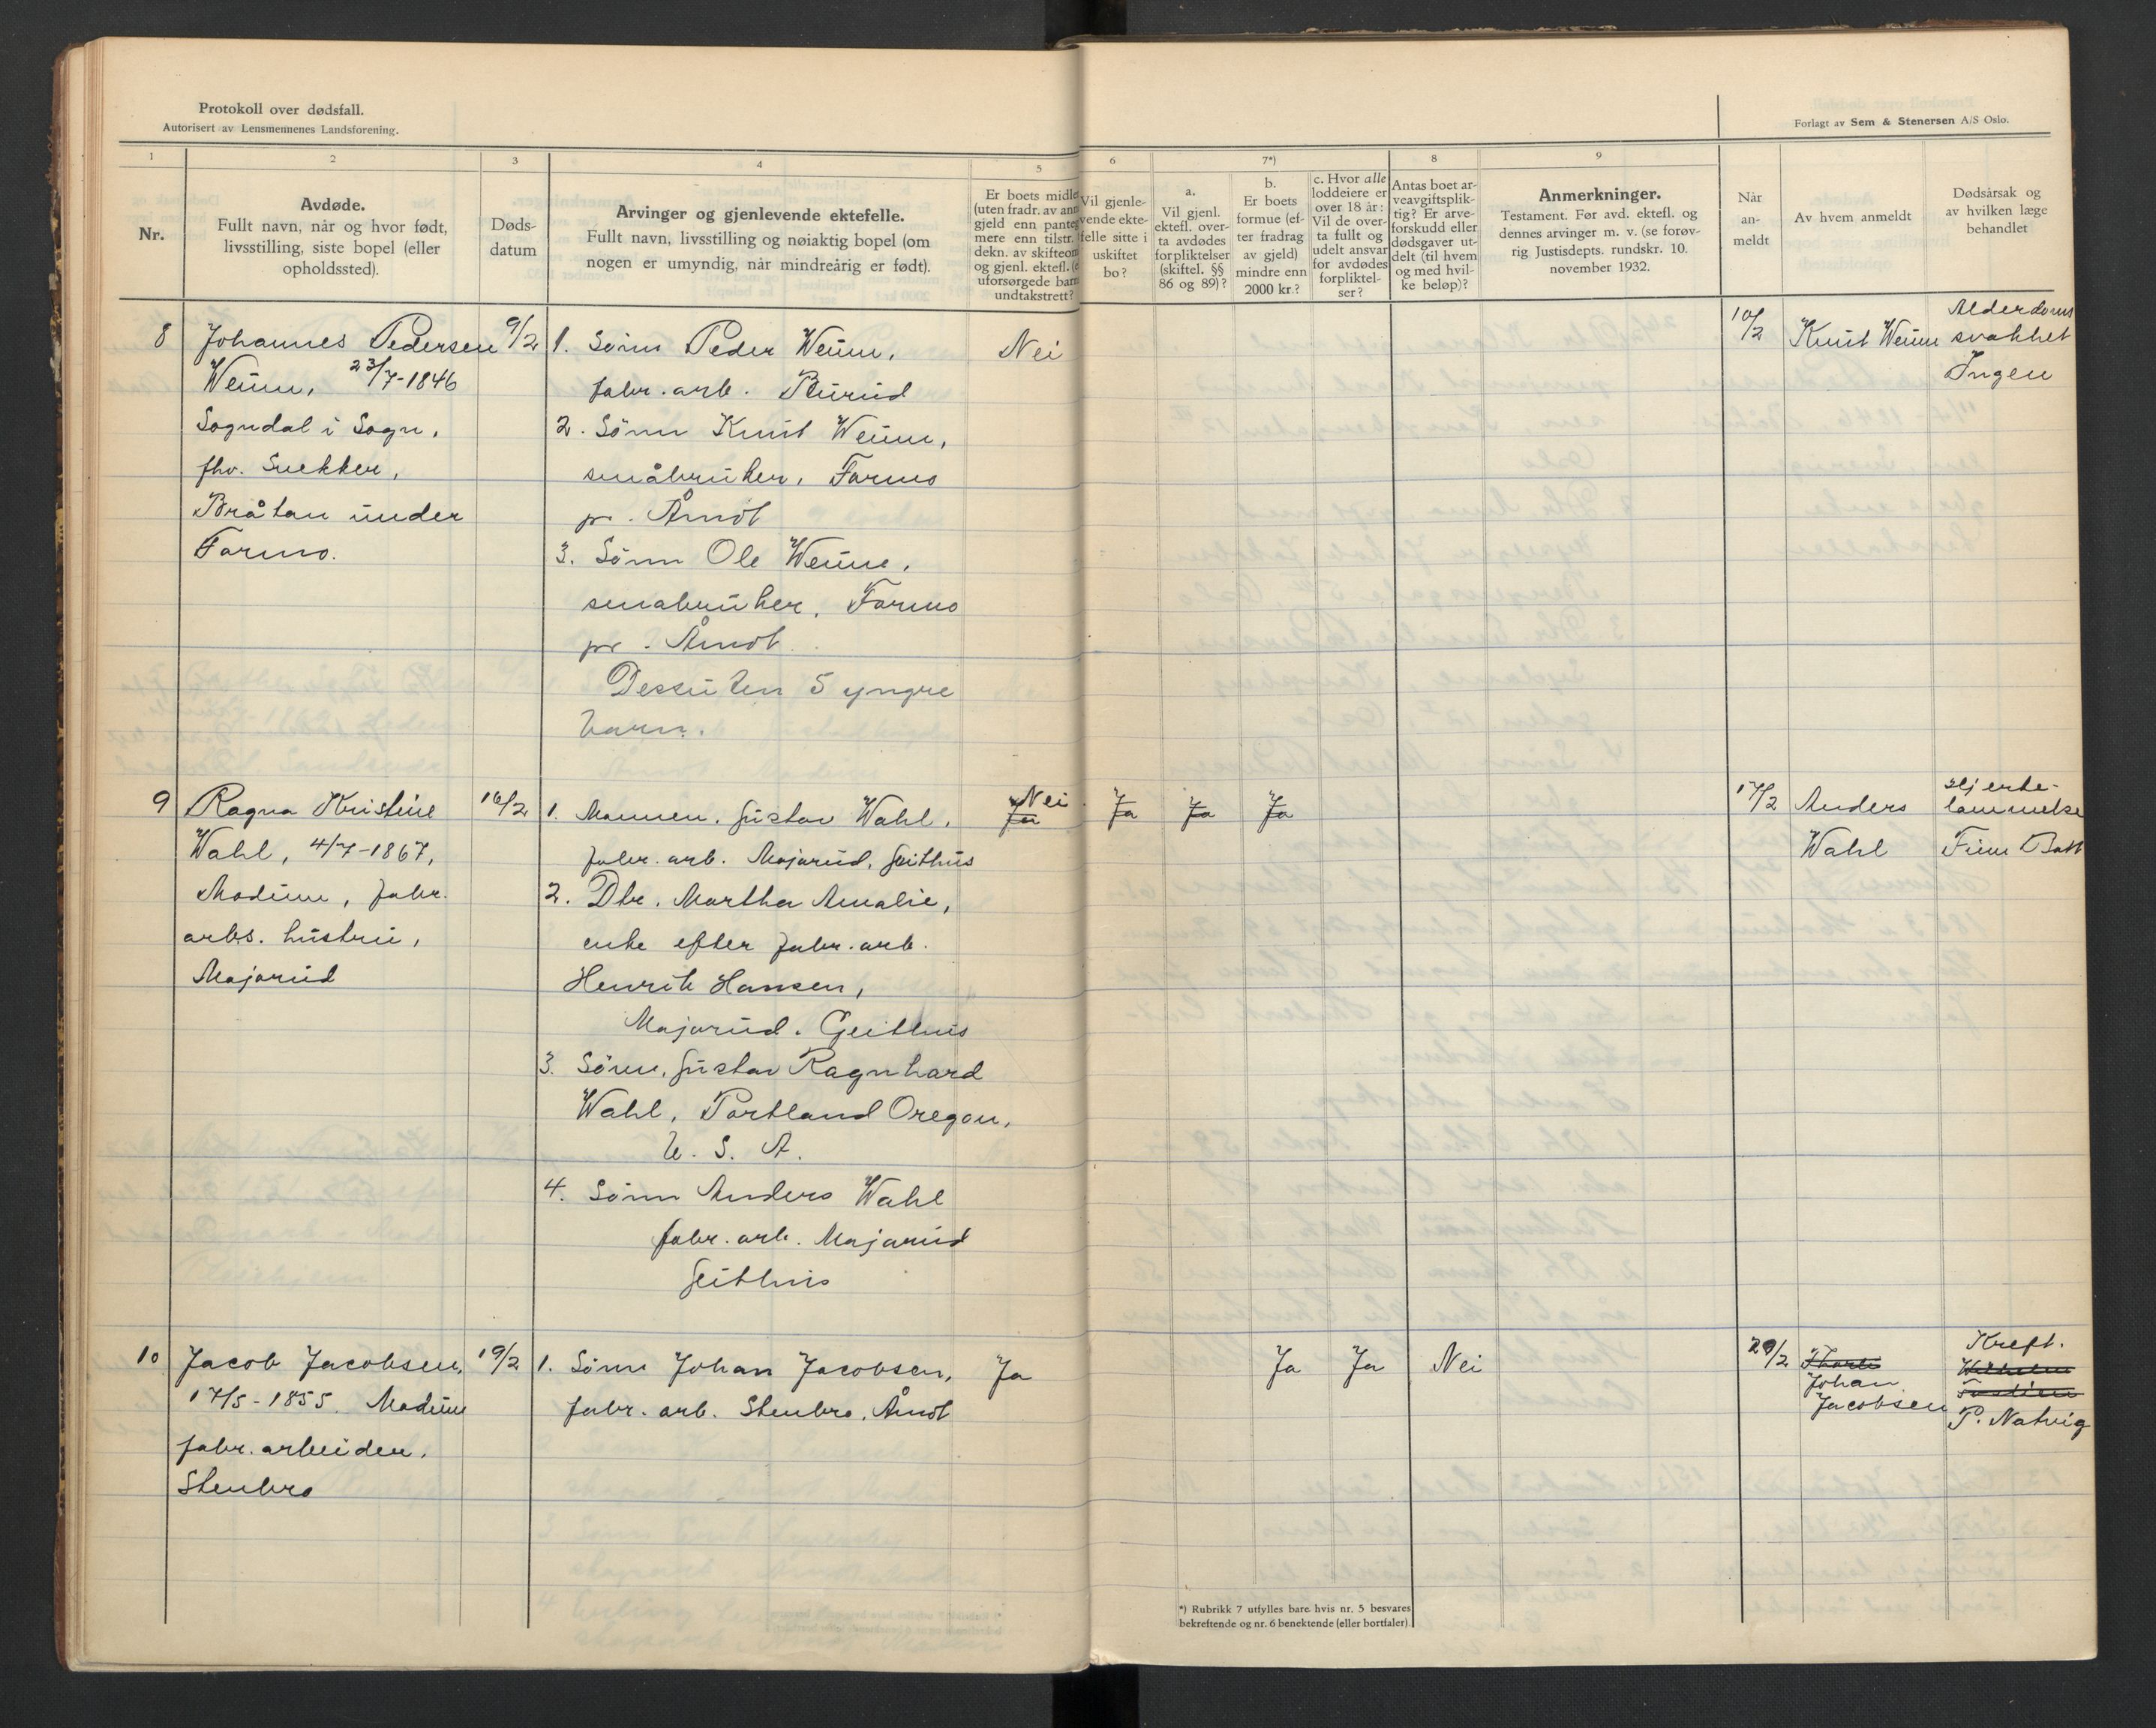 Protokoll over dødsfall.
Autorisert av Lensmennenes Landsforening.
Forlagt av Sem & Stenersen A/S Oslo.
1
2
3
4
5
6
7*)
8
9
Nr.
Avdøde.
Fullt navn, når og hvor født,
livsstilling, siste bopel (eller
opholdssted).
Døds-
datum
Arvinger og gjenlevende ektefelle.
Fullt navn, livsstilling og nøiaktig bopel (om
nogen er umyndig, når mindreårig er født).
Er boets midle
(uten fradr. av ann
gjeld enn panteg
mere enn tilstr.
dekn. av skifteom
og gjenl. ektefl. (o
uforsørgede barn
undtakstrett?
Vil gjenle-
vende ekte-
felle sitte i
uskiftet
bo?
a.
Vil gjenl.
ektefl. over-
ta avdødes
forpliktelser
(skiftel. §§
86 og 89)?
b.
Er boets
formue (ef-
ter fradrag
av gjeld)
mindre enn
2000 kr.?
c. Hvor alle
loddeiere er
over 18 år:
Vil de over-
ta fullt og
udelt ansvar
for avdødes
forpliktel-
ser?
Antas boet ar-
veavgiftsplik-
tig? Er arve-
forskudd eller
dødsgaver ut-
delt (til hvem
og med hvil-
ke beløp)?
Anmerkninger.
Testament. Før avd. ektefl. og
dennes arvinger m. v. (se forøv-
rig Justisdepts. rundskr. 10.
november 1932.
Når
an-
meldt
Av hvem anmeldt
Dødsårsak og
av hvilken læge
behandlet
8
Johannes Pedersen
Wenum, 23/7-1846
Sogndal i Sogn,
fhv. Snekker,
Bråtan under
Formo.
9/2
1. Sønn Peder Wenum,
fabr. arb. Rürud
2. Sønn Knut Wenum,
småbruker, Formo
pr. Åmot
3. Sønn Ole Wenum,
småbruker, Formo
pr. Åmot.
Dessuten 5 yngre
barn.
Nei
10/2
Knut Wenum
Alderdoms
svakhet
Ingen
9
Ragna Kristine
Wahl, 4/7-1867,
Modum, fabr.
arbs. hustru,
Majorud
16/2
1. Mannen, Gustav Wahl,
fabr. arb. Majorud, Geithus
2. Dtr. Martha Amalie,
enke efter fabr. arb.
Henrik Hansen,
Majorud. Geithus
3. Sønn, Gustav Ragnhard
Wahl, Portland Oregon,
U. S. A.
4. Sønn Anders Wahl
fabr. arb. Majorud
Geithus
Nei
Ja
Ja
Ja
Ja
17/2
Anders
Wahl
Hjerte-
lammelse
Finn Batt
10
Jacob Jacobsen,
17/5-1855. Modum
fabr. arbeider,
Stenbro
19/2
1. Sønn Johan Jacobsen,
fabr. arb. Stenbro, Åmot
Ja
Ja
Ja
Nei
20/2
Johan
Jacobsen
Kreft.
P. Natvig
*) Rubrikk 7 utfylles bare hvis nr. 5 besvares
bekreftende og nr. 6 benektende (eller bortfaler).